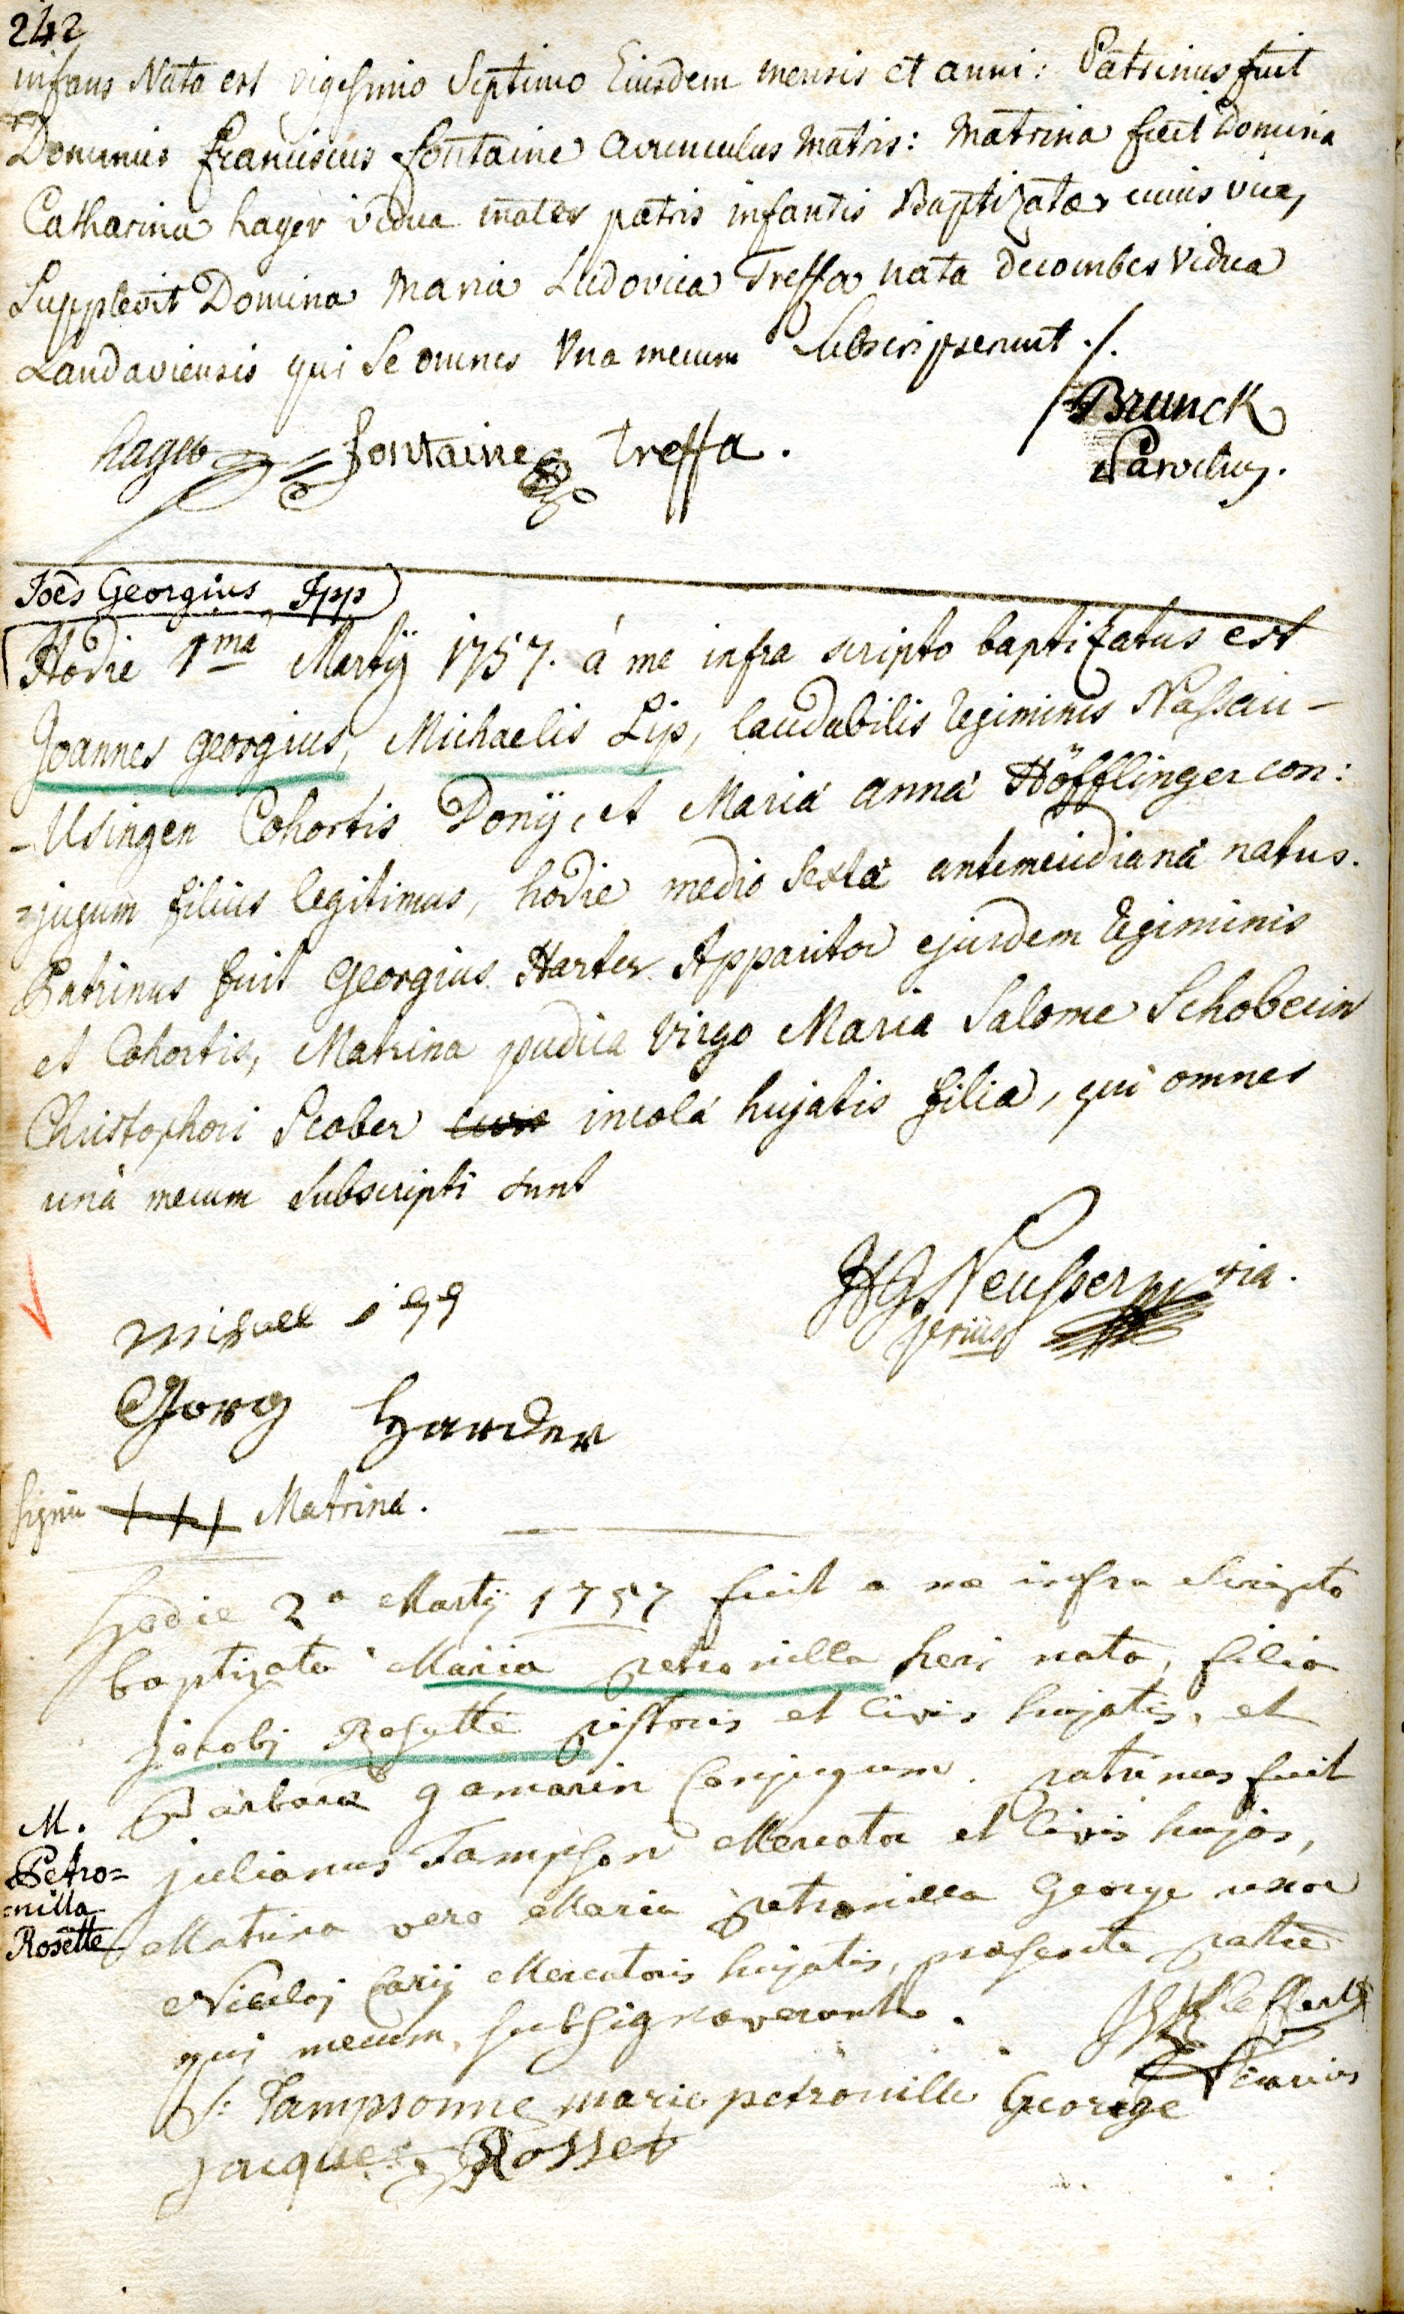 242
infans Nata est vigesimo Septimo Eiusdem mensis et anni: Patrinus fuit
Dominus franciscus fontaine avunculus Matris: Matrina fuit Domina
Catharina hager vidua mater patris infantis Baptizatae cuius vice,
Supplevit Domina Maria Ludovica Treffa nata Decombes vidua
Landaviensis qui Se omnes Una mecum Subscripserunt ./.
Brunck
Parochus.
hager fontaine treffa.
Joēs Georgius Ipp
Hodie 1ma Martÿ 1757. á me infra scripto baptizatus est
Joannes georgius, Michaelis Lip, laudabilis Regiminis Nassau-
-Usingen Cohortis Donÿ, et Mariá anná Höfflinger con:
=jugum filius legitimus, hodie medio Sextá antemeridianá natus.
Patrinus fuit Georgius Harter Apparitor ejusdem Regiminis
et Cohortis, Matrina pudica Virgo Maria Salome Schoberin
Christophori Scober incolá hujatis filia, qui omnes
uná mecum Subscripti sunt
Neusser
Georg Harder
Signū +++ Matrina.
hodie 2a Martÿ 1757 fuit a me infra Scripto
baptizata Maria petronilla heri nata, filia
jacobj Rosette pistoris et Civis hujatis, et
Barbara gamarin Conjugum. patrinus fuit
julianus Tampson Mercator et Civis hujas,
Matrina vero Maria petronilla George uxor
Nicolaj Carÿ Mercatoris hujatis, praesente patre
qui mecum subsignaverunt.
M.
Petro=
=nilla
Rosette
Vicarius
J: Tampsonne marie petronille George
jacques Rosset